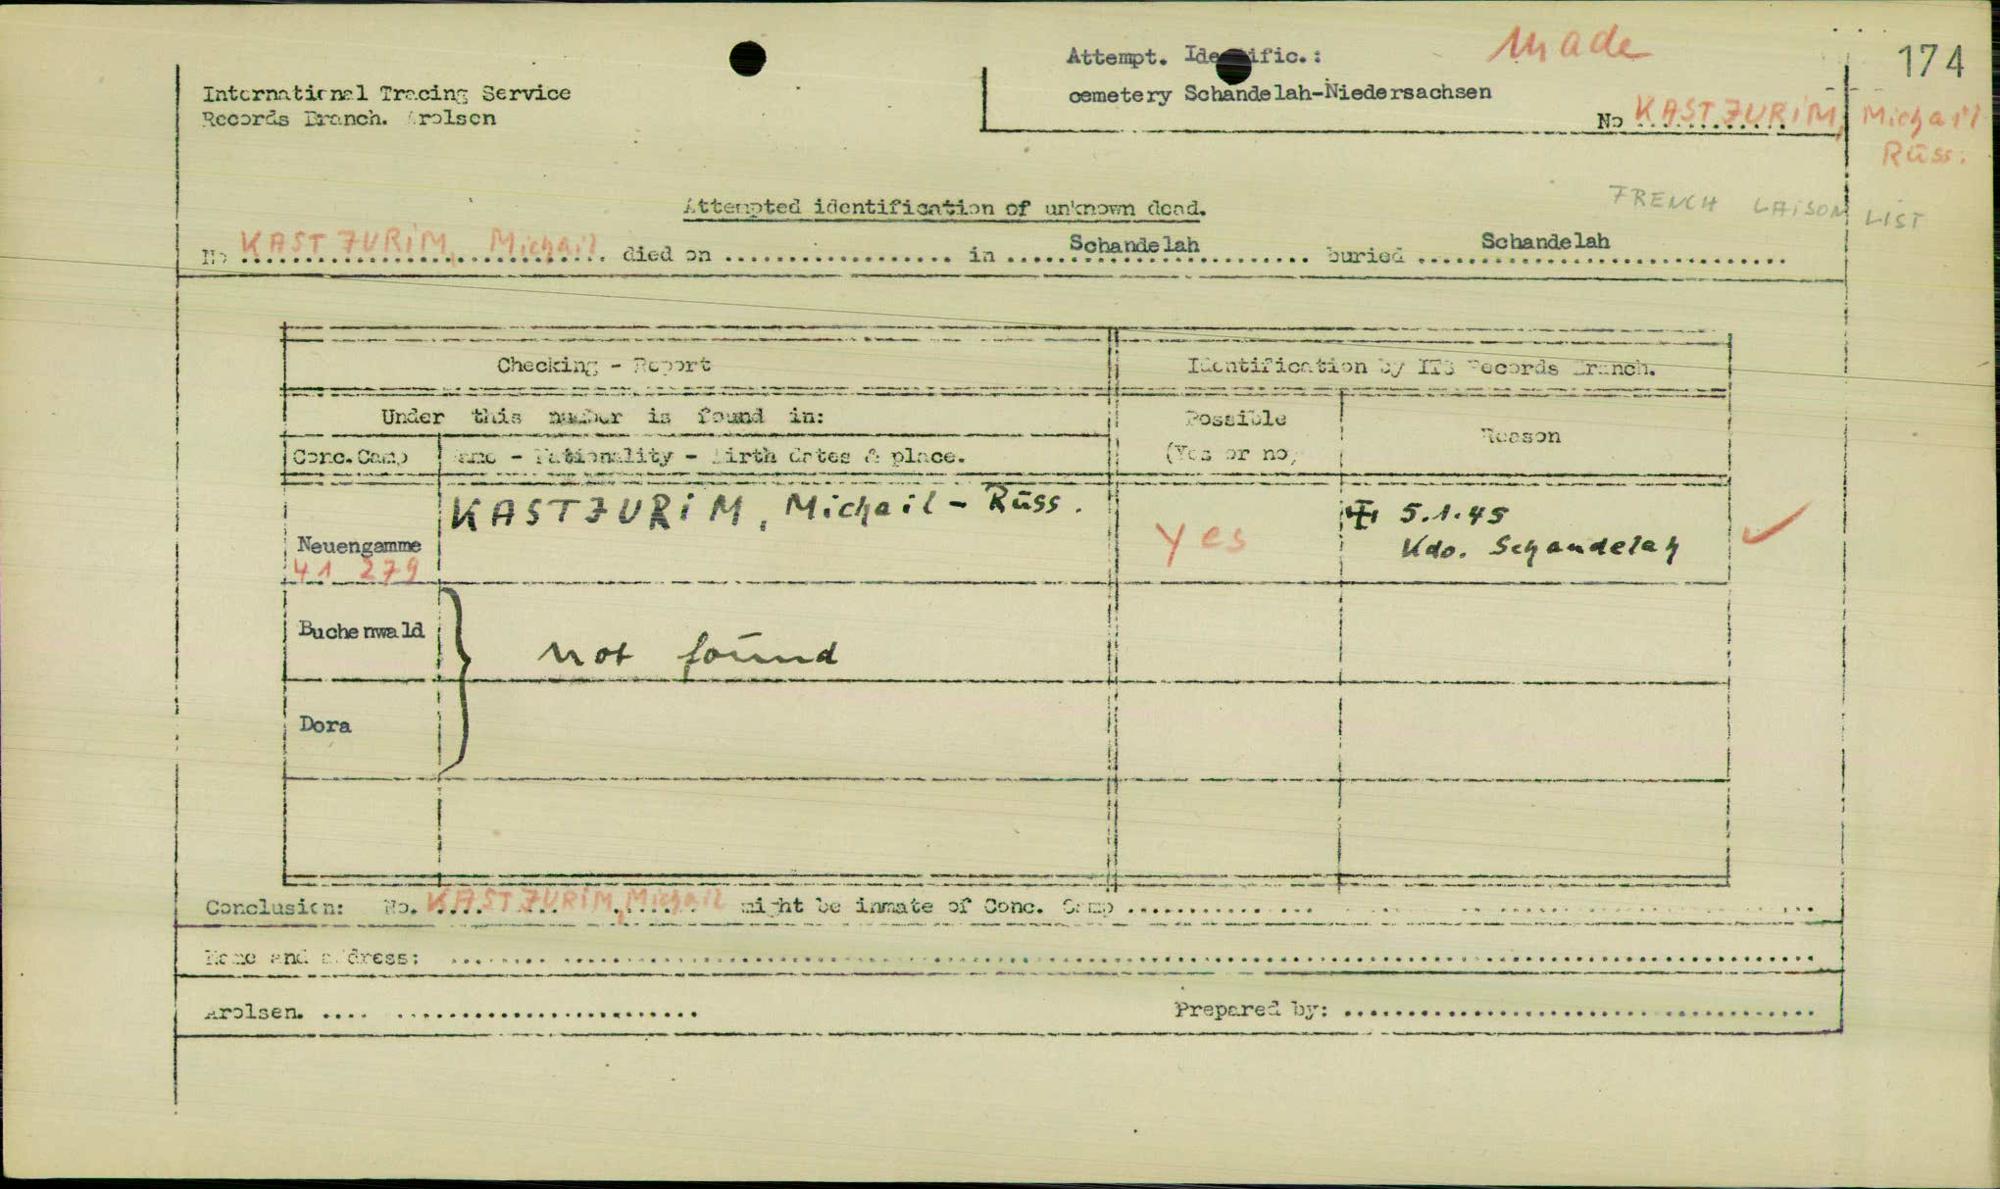 174
Attempt. Identific.: made
International Tracing Service
Records Branch. Arolsen
cemetery Schandelah-Niedersachsen
No KASTJURiM, Michail
Rūss.
FRENCH LAiSON LIST
Attempted identification of unknown dead.
No KASTJURiM, Michail died on .................. in Schandelah buried Schandelah
Checking - Report
Identification by ITS Records Branch.
Under this number is found in:
Possible
(Yes or no)
Reason
Conc. Camp
Name - Nationality - Birth dates & place.
Neuengamme
41 279
KASTJURiM, Michail - Rūss.
yes
5.1.45
Kdo. Schandelah
Buchenwald
not foūnd
Dora
Conclusion: No. KASTJURiM, Michail might be inmate of Conc. Camp ..............................
Name and address: ..............................
Arolsen. ..............................
Prepared by: ..............................